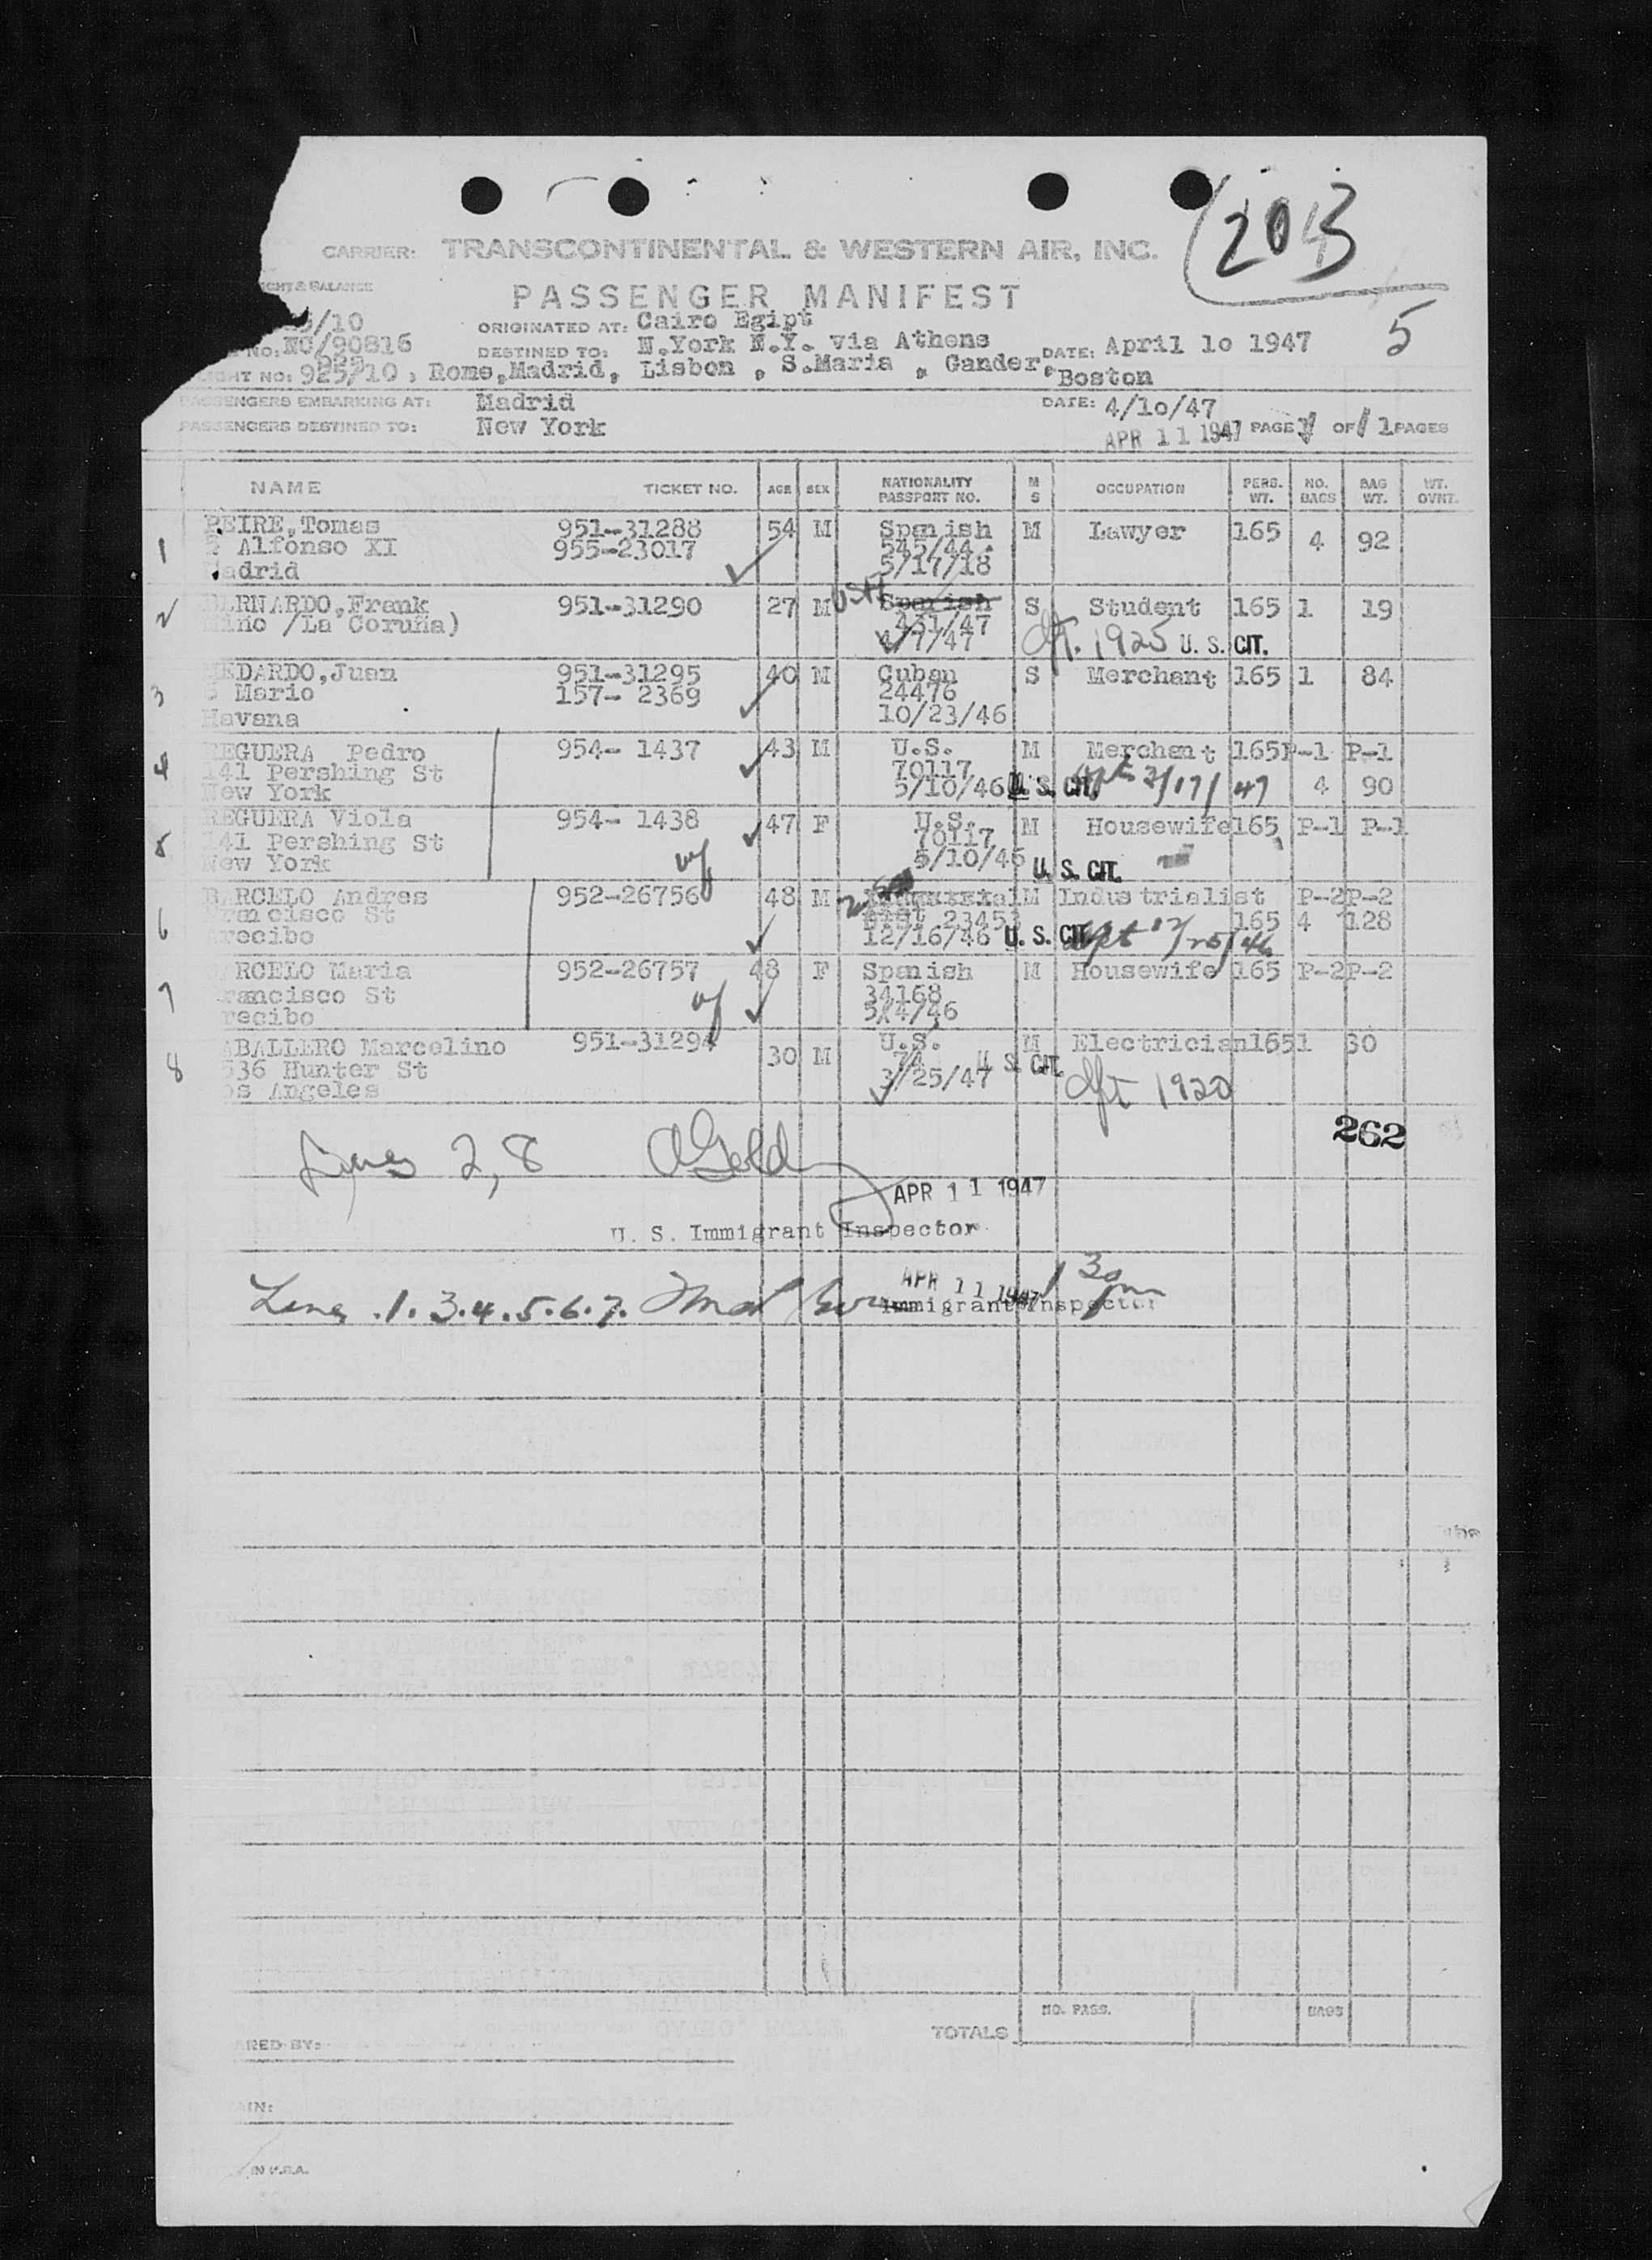 203
CARRIER: TRANSCONTINENTAL & WESTERN AIR, INC.
GHT & BALANCE
PASSENGER MANIFEST
5
/10 ORIGINATED AT: Cairo Egipt
NO: NC/90816 DESTINED TO: N.York N.Y. via Athens DATE: April 1o 1947
IGHT NO: 925/10, Rome,Madrid, Lisbon, S.Maria, Gander, Boston
PASSENGERS EMBARKING AT: Madrid DATE: 4/1o/47
PASSENGERS DESTINED TO: New York APR 11 1947 PAGE OF 1 PAGES
NAME TICKET NO. AGE SEX NATIONALITY PASSPORT NO. M S OCCUPATION PERS. WT. NO. BAGS BAG WT. WT. OVNT.
1 PEIRE, Tomas 951-31288 54 M Spanish M Lawyer 165 4 92
Alfonso XI 955-23017 545/44
Madrid 5/17/18
2 BERNARDO, Frank 951-31290 27 M USA Spanish S Student 165 1 19
Mino /La Coruña) 451/47
4/7/47 1925 U. S. CIT.
3 MEDARDO, Juan 951-31295 40 M Cuban S Merchant 165 1 84
Mario 157- 2369 24476
Havana 10/23/46
4 REGUERA Pedro 954- 1437 43 M U.S. M Merchant 165 P-1 P-1
141 Pershing St 70117 4 90
New York 5/10/46 U. S. CIT. 3/17/47
5 REGUERA Viola 954- 1438 47 F U.S. M Housewife 165 P-1 P-1
141 Pershing St 70117
New York wf 5/10/46 U. S. CIT.
6 BARCELO Andres 952-26756 48 M M Industrialist P-2 P-2
Francisco St 23453 165 4 128
Arecibo 12/16/46 U. S. CIT. 12/25/46
7 BARCELO Maria 952-26757 48 F Spanish M Housewife 165 P-2 P-2
Francisco St 34168
Arecibo wf 5/4/46
8 ABALLERO Marcelino 951-31294 30 M U.S. M Electrician 165 1 30
536 Hunter St 74 U. S. CIT.
os Angeles 3/25/47 1920
262
Lines 2, 8 AGold
APR 11 1947
U. S. Immigrant Inspector
Line .1.3.4.5.6.7. APR 11 1947 1 30 pm
Immigrant Inspector
NO. PASS. BAGS
TOTALS
ARED BY:
AIN:
IN U.S.A.